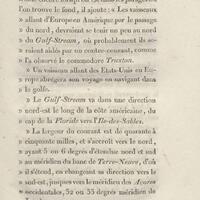 on trouve le fond, il ajoute: « Les vaisseaux
» allant d'Europe en Amérique par le passage
» du nord, devroient se tenir un peu au nord
» du Gulf-Stream, où probablement ils se-
roient aidés par un contre-courant, comme
» l'a observé le commodore Truxton.
» Un vaisseau allant des Etats-Unis en Eu-
rope abrégera son voyage en navigant dans
» le golfe.
» Le Gulf-Stream va dans une direction
» nord-est le long de la côte américaine, du
» cap de la Floride vers l'Ile-des-Sables.
» La largeur du courant est de quarante à
cinquante milles, et s'accroît vers le nord,
» ayant 5 ou 6 degrés d'étendue nord et sud
» au méridien du banc de Terre-Neuve, d'où
» il s'étend, en changeant sa direction vers le
sud-est, jusques vers le méridien des Açores
» occidentales, 32 ou 33 degrés méridien de